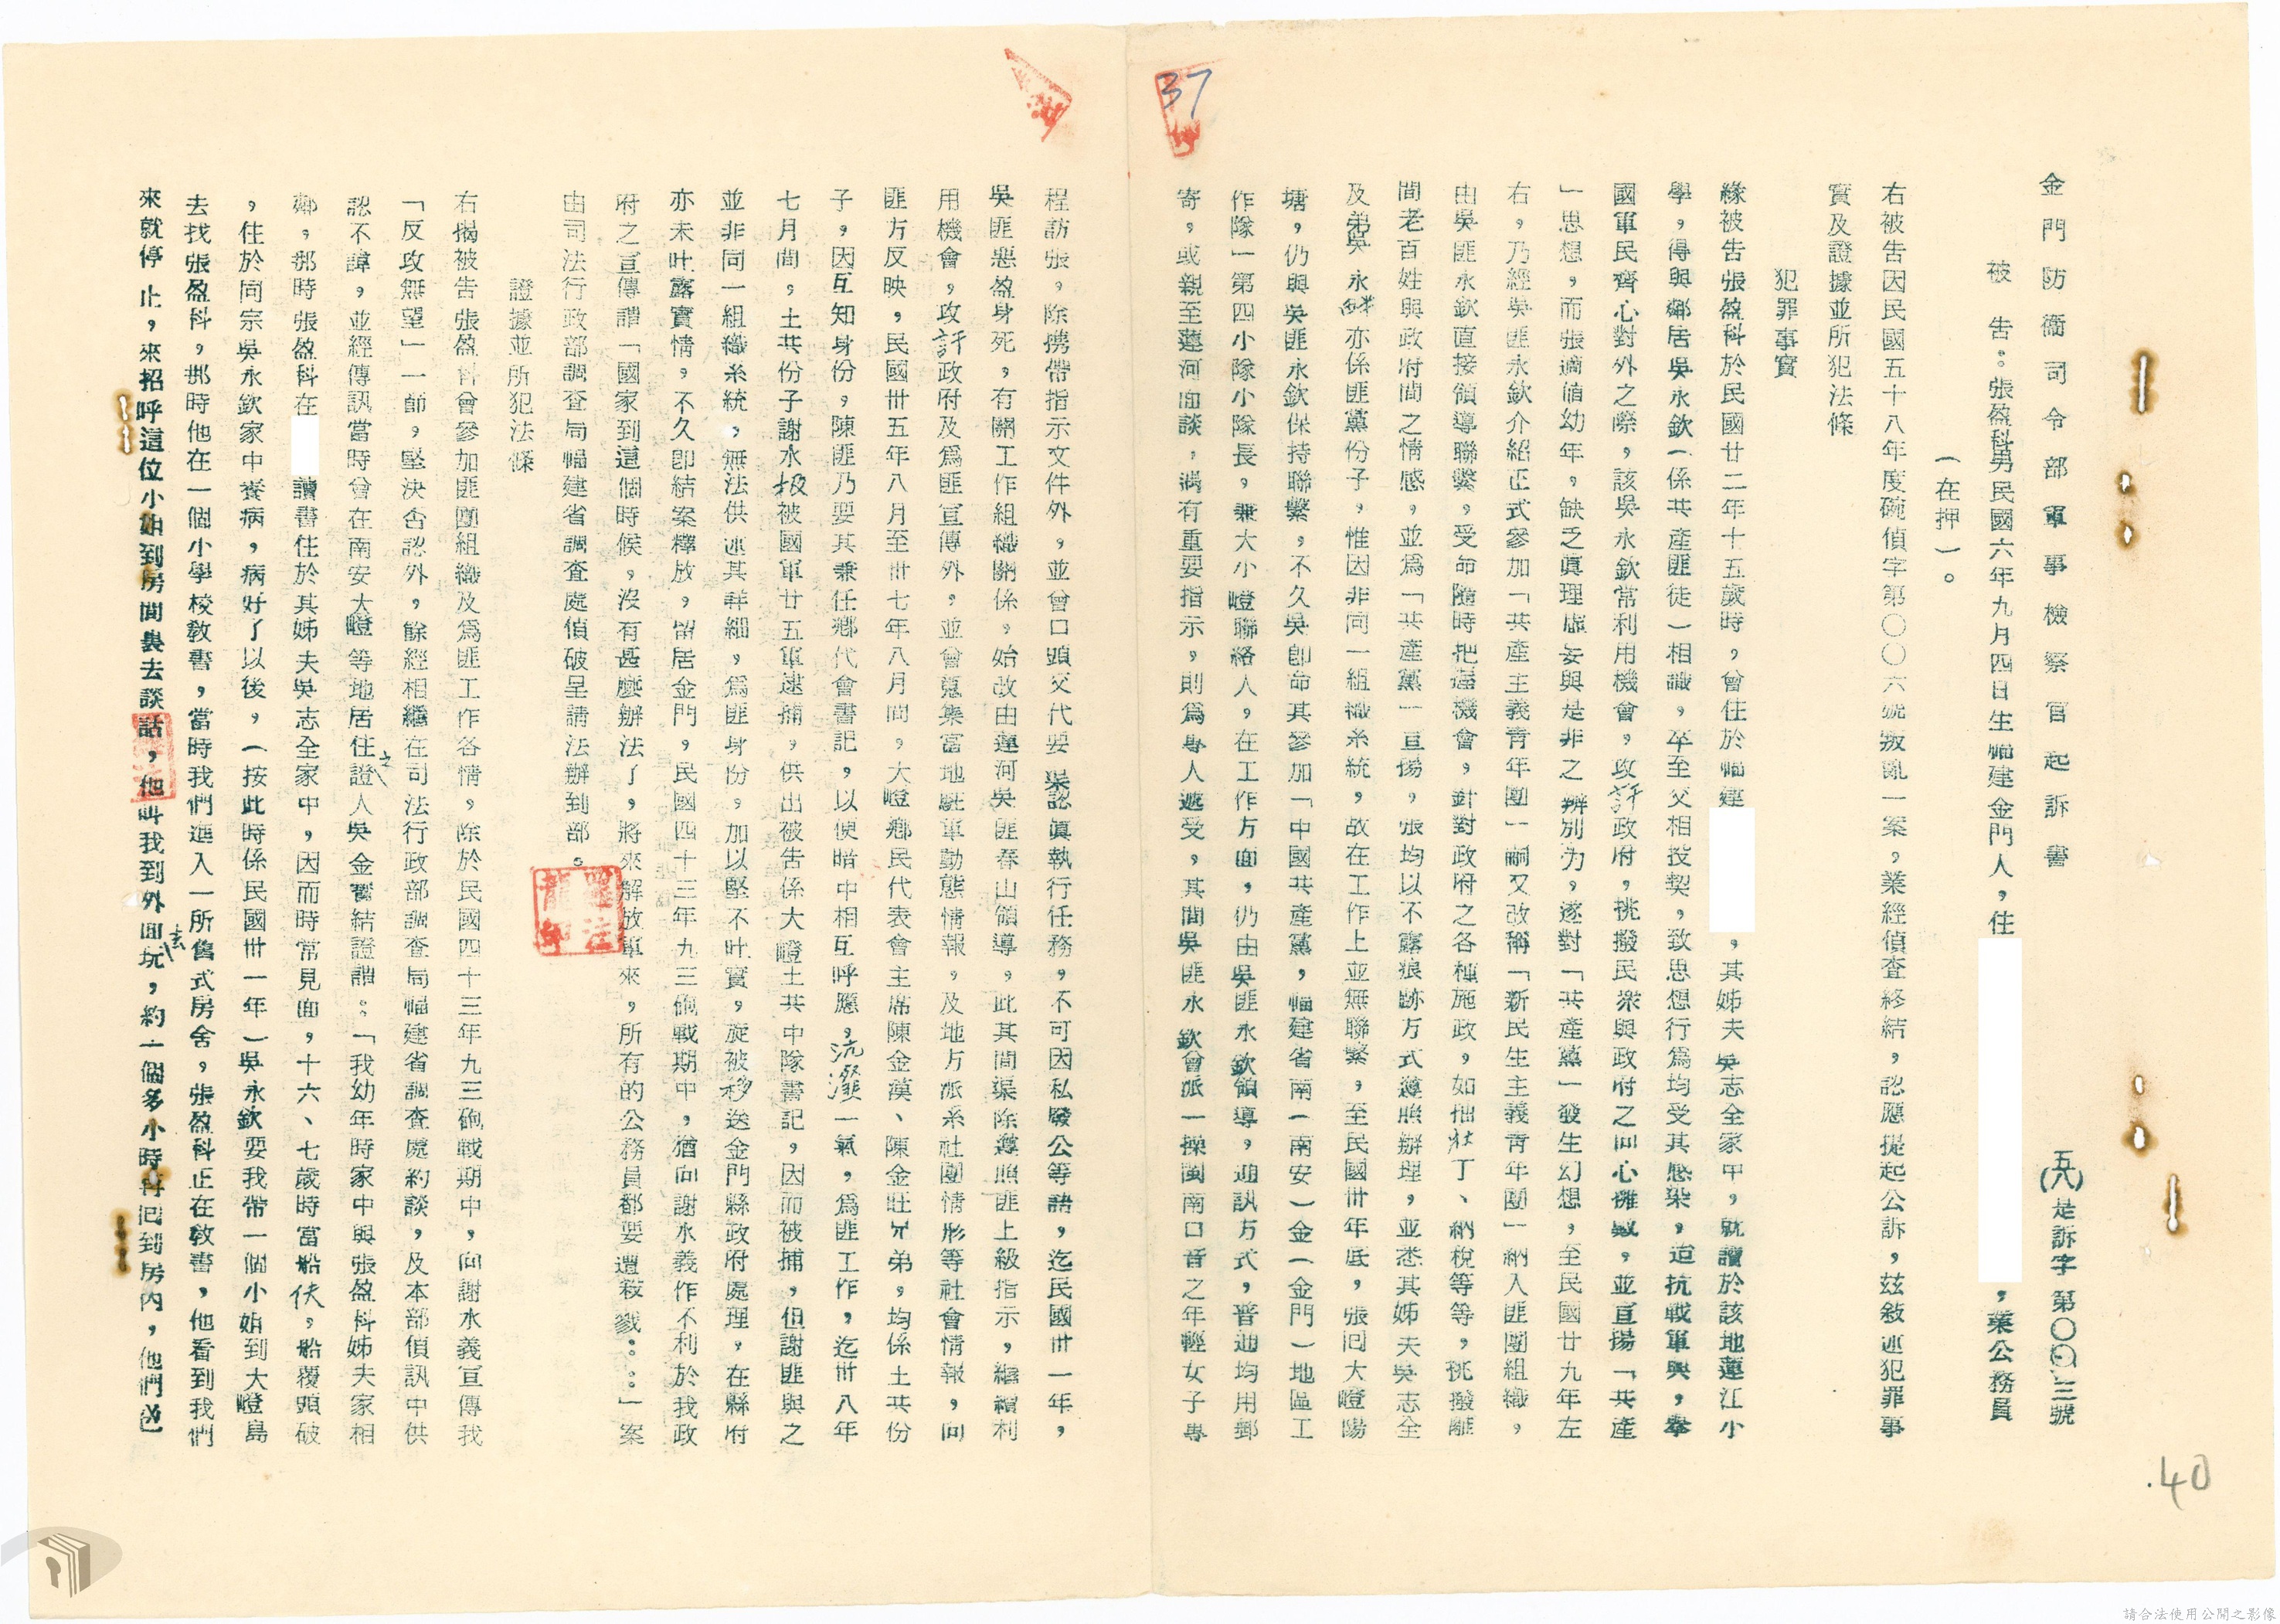 金門防衛司令部軍事檢察官起訴書
五(八)是訴字第〇〇三號
被告：張盈科男民國六年九月四日生福建金門人，住，業公務員
（在押）。
右被告因民國五十八年度碗偵字第〇〇六號叛亂一案，業經偵查終結，認應提起公訴，玆敘述犯罪事
實及證據並所犯法條
犯罪事實
緣被告張盈科於民國廿二年十五歲時，曾住於福建，其姊夫吳志全家中，就讀於該地蓮江小
學，得與鄰居吳永欽（係共產匪徒）相識，卒至交相投契，致思想行為均受其感染，迨抗戰軍興，舉
國軍民齊心對外之際，該吳永欽常利用機會，攻訐政府，挑撥民眾與政府之向心擁戴，並宣揚「共產
」思想，而張適值幼年，缺乏真理虛妄與是非之辨別力，遂對「共產黨」發生幻想，至民國廿九年左
右，乃經吳匪永欽介紹正式參加「共產主義青年團」嗣又改稱「新民生主義青年團」納入匪團組織，
由吳匪永欽直接領導聯繫，受命隨時把握機會，針對政府之各種施政，如抽壯丁、納稅等等，挑撥離
間老百姓與政府間之情感，並為「共產黨」宣揚，張均以不露痕跡方式遵照辦理，並悉其姊夫吳志全
及弟吳永 亦係匪黨份子，惟因非同一組織系統，故在工作上並無聯繫，至民國卅年底，張回大嶝陽
塘，仍與吳匪永欽保持聯繫，不久吳即命其參加「中國共產黨，福建省南（南安）金（金門）地區工
作隊」第四小隊小隊長，兼大小嶝聯絡人，在工作方面，仍由吳匪永欽領導，通訊方式，普通均用郵
寄，或親至蓮河面談，遇有重要指示，則為專人遞受，其間吳匪永欽曾派一操閩南口音之年輕女子專
37
程訪張，除携帶指示文件外，並曾口頭交代要渠認真執行任務，不可因私廢公等語，迄民國卅一年，
吳匪惡盈身死，有關工作組織關係，始改由蓮河吳匪春山領導，此其間渠除遵照匪上級指示，繼續利
用機會，攻訐政府及為匪宣傳外，並曾蒐集當地駐軍動態情報，及地方派系社團情形等社會情報，向
匪方反映，民國卅五年八月至卅七年八月間，大嶝鄉民代表會主席陳金漢、陳金旺兄弟，均係土共份
子，因互知身份，陳匪乃要其兼任鄉代會書記，以便暗中相互呼應，沆瀣一氣，為匪工作，迄卅八年
七月間，土共份子謝水扱被國軍廿五軍逮捕，供出被告係大嶝土共中隊書記，因而被捕，但謝匪與之
並非同一組織系統，無法供述其詳細，為匪身份，加以堅不吐實，旋被移送金門縣政府處理，在縣府
亦未吐露實情，不久即結案釋放，留居金門，民國四十三年九三砲戰期中，猶向謝水義作不利於我政
府之宣傳謂「國家到這個時候，沒有甚麼辦法了，將來解放軍來，所有的公務員都要遭殺戮……」案
由司法行政部調查局福建省調查處偵破呈請法辦到部。
證據並所犯法條
右揭被告張盈科曾參加匪團組織及為匪工作各情，除於民國四十三年九三砲戰期中，向謝水義宣傳我
「反攻無望」一節，堅決否認外，餘經相繼在司法行政部調查局福建省調查處約談，及本部偵訊中供
認不諱，並經傳訊當時曾在南安大嶝等地居住之證人吳金寶結證謂：「我幼年時家中與張盈科姊夫家相
鄰，那時張盈科在讀書住於其姊夫吳志全家中，因而時常見面，十六、七歲時當船伕，船覆頭破
，住於同宗吳永欽家中養病，病好了以後，（按此時係民國卅一年）吳永欽要我帶一個小姐到大嶝島
去找張盈科，那時他在一個小學校教書，當時我們進入一所舊式房舍，張盈科正在教書，他看到我們
來就停止，來招呼這位小姐到房間裏去談話，他叫我到外面去玩，約一個多小時再回到房內，他們必
.40
請合法使用公開之影像